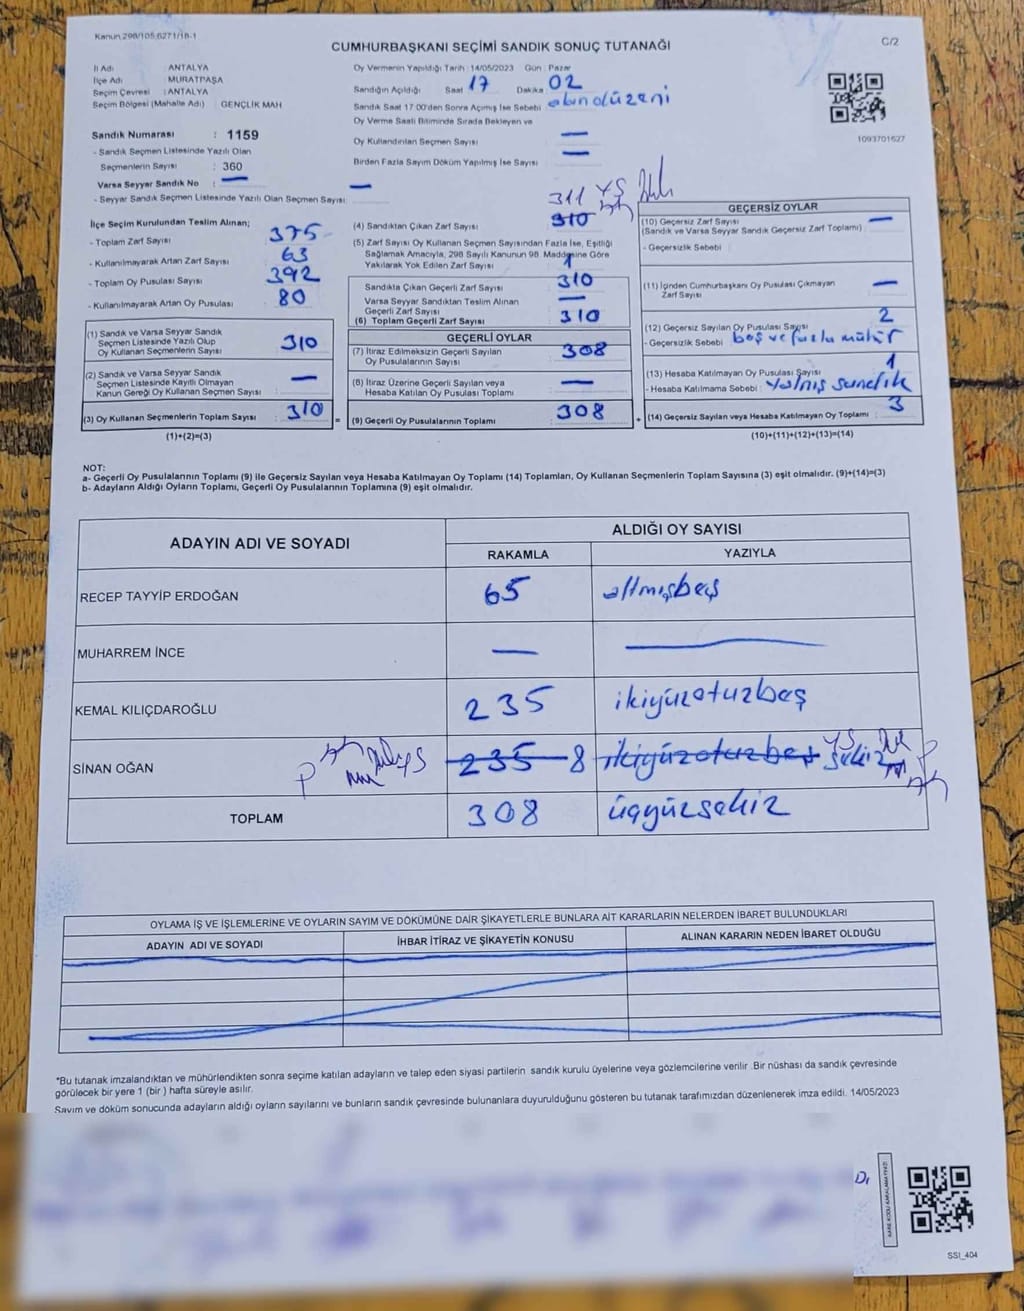 Kanun 298/105,6271/18-1
CUMHURBAŞKANI SEÇİMİ SANDIK SONUÇ TUTANAĞI
C/2
İl Adı : ANTALYA
İlçe Adı : MURATPAŞA
Seçim Çevresi : ANTALYA
Seçim Bölgesi (Mahalle Adı) : GENÇLİK MAH
Sandık Numarası : 1159
- Sandık Seçmen Listesinde Yazılı Olan
Seçmenlerin Sayısı : 360
Varsa Seyyar Sandık No : —
- Seyyar Sandık Seçmen Listesinde Yazılı Olan Seçmen Sayısı: —
Oy Vermenin Yapıldığı Tarih :14/05/2023 Gün : Pazar
Sandığın Açıldığı Saat 17 Dakika 02
Sandık Saat 17:00'den Sonra Açmış İse Sebebi
Oy Verme Saati Bitiminde Sırada Bekleyen ve
Oy Kullandırılan Seçmen Sayısı : —
Birden Fazla Sayım Döküm Yapılmış İse Sayısı : —
1093701627
İlçe Seçim Kurulundan Teslim Alınan;
- Toplam Zarf Sayısı : 375
- Kullanılmayarak Artan Zarf Sayısı : 63
- Toplam Oy Pusulası Sayısı : 392
- Kullanılmayarak Artan Oy Pusulası : 80
(1) Sandık ve Varsa Seyyar Sandık
Seçmen Listesinde Yazılı Olup
Oy Kullanan Seçmenlerin Sayısı : 310
(2) Sandık ve Varsa Seyyar Sandık
Seçmen Listesinde Kayıtlı Olmayan
Kanun Gereği Oy Kullanan Seçmen Sayısı : —
(3) Oy Kullanan Seçmenlerin Toplam Sayısı : 310
(1)+(2)=(3)
311 YŞ
(4) Sandıktan Çıkan Zarf Sayısı : 310
(5) Zarf Sayısı Oy Kullanan Seçmen Sayısından Fazla İse, Eşitliği
Sağlamak Amacıyla, 298 Sayılı Kanunun 98. Maddesine Göre
Yakılarak Yok Edilen Zarf Sayısı : 1
Sandıkta Çıkan Geçerli Zarf Sayısı : 310
Varsa Seyyar Sandıktan Teslim Alınan
Geçerli Zarf Sayısı : —
(6) Toplam Geçerli Zarf Sayısı : 310
GEÇERLİ OYLAR
(7) İtiraz Edilmeksizin Geçerli Sayılan
Oy Pusulalarının Sayısı : 308
(8) İtiraz Üzerine Geçerli Sayılan veya
Hesaba Katılan Oy Pusulası Toplamı : —
(9) Geçerli Oy Pusulalarının Toplamı : 308
GEÇERSİZ OYLAR
(10) Geçersiz Zarf Sayısı : —
(Sandık ve Varsa Seyyar Sandık Geçersiz Zarf Toplamı)
- Geçersizlik Sebebi :
(11) İçinden Cumhurbaşkanı Oy Pusulası Çıkmayan
Zarf Sayısı : —
(12) Geçersiz Sayılan Oy Pusulası Sayısı : 2
- Geçersizlik Sebebi : boş ve fazla mühür
(13) Hesaba Katılmayan Oy Pusulası Sayısı : 1
- Hesaba Katılmama Sebebi : yalnış sandık
(14) Geçersiz Sayılan veya Hesaba Katılmayan Oy Toplamı : 3
(10)+(11)+(12)+(13)=(14)
NOT:
a- Geçerli Oy Pusulalarının Toplamı (9) ile Geçersiz Sayılan veya Hesaba Katılmayan Oy Toplamı (14) Toplamları, Oy Kullanan Seçmenlerin Toplam Sayısına (3) eşit olmalıdır. (9)+(14)=(3)
b- Adayların Aldığı Oyların Toplamı, Geçerli Oy Pusulalarının Toplamına (9) eşit olmalıdır.
ADAYIN ADI VE SOYADI
ALDIĞI OY SAYISI
RAKAMLA YAZIYLA
RECEP TAYYİP ERDOĞAN 65 altmışbeş
MUHARREM İNCE — —
KEMAL KILIÇDAROĞLU 235 ikiyüzotuzbeş
SİNAN OĞAN 235 8 ikiyüzotuzbeş sekiz
TOPLAM 308 üçyüzsekiz
OYLAMA İŞ VE İŞLEMLERİNE VE OYLARIN SAYIM VE DÖKÜMÜNE DAİR ŞİKAYETLERLE BUNLARA AİT KARARLARIN NELERDEN İBARET BULUNDUKLARI
ADAYIN ADI VE SOYADI İHBAR İTİRAZ VE ŞİKAYETİN KONUSU ALINAN KARARIN NEDEN İBARET OLDUĞU
*Bu tutanak imzalandıktan ve mühürlendikten sonra seçime katılan adayların ve talep eden siyasi partilerin sandık kurulu üyelerine veya gözlemcilerine verilir. Bir nüshası da sandık çevresinde
görülecek bir yere 1 (bir) hafta süreyle asılır.
Sayım ve döküm sonucunda adayların aldığı oyların sayılarını ve bunların sandık çevresinde bulunanlara duyurulduğunu gösteren bu tutanak tarafımızdan düzenlenerek imza edildi. 14/05/2023
KARE KODU KARALAMAYINIZ!
SSI_404